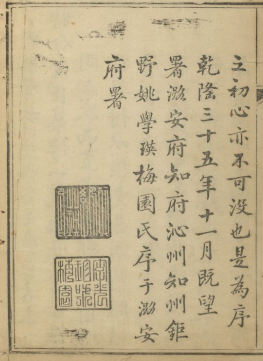 之初心亦不可没也是為序
乾隆三十五年十一月既望
署潞安府知府沁州知州鉅
野姚學瑛梅園氏序于潞安
府署